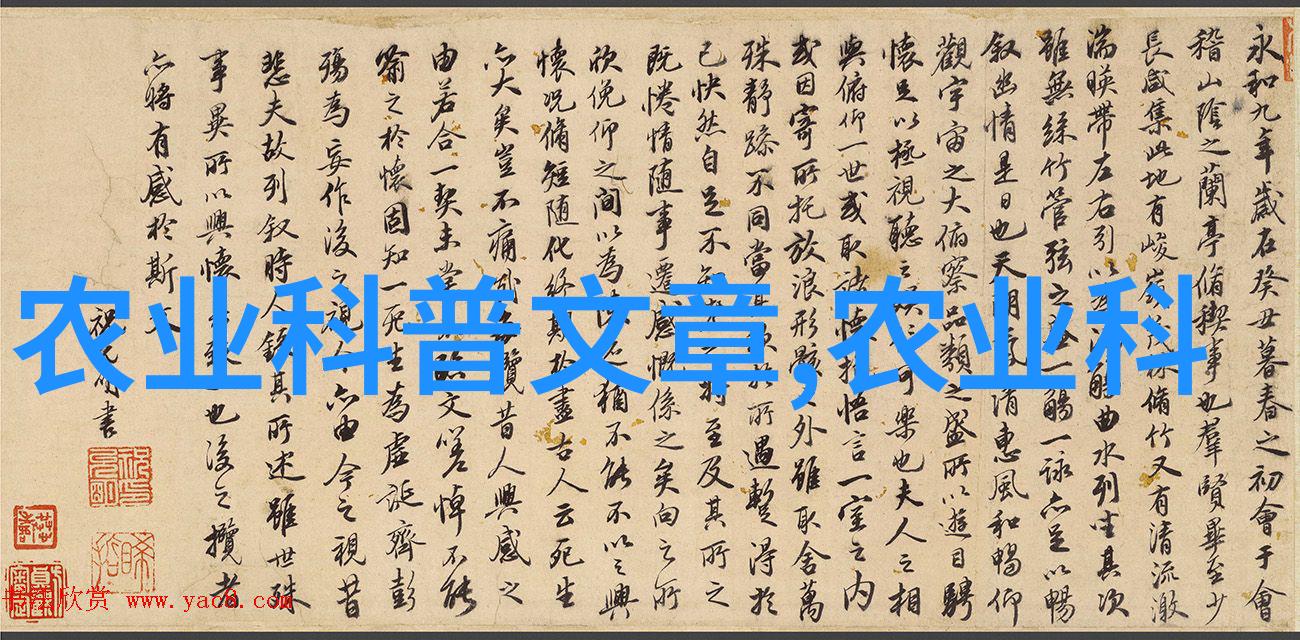 永和九年歲在癸丑暮春之初會于會
稽山陰之蘭亭脩稧事也羣賢畢至少
長咸集此地有峻嶺茂林脩竹又有清流激
湍暎帶左右引以為流觴曲水列坐其次
雖無絲竹管弦之一觴一詠亦足以暢
叙幽情是日也天朗清惠風和暢仰
觀宇宙之大俯察品類之盛所以遊目騁
懷足以極視聽之娛可樂也夫人之相
與俯仰一世或取諸懷抱悟言一室之內
或因寄所托放浪形骸外雖取舍萬
殊靜躁不同當其於所遇蹔得於
己快然自足不知將至及其所之
既惓情随事遷感慨係之矣向之所
欣俛仰之間以為猶不能不以之興
懷況脩短随化終期於盡古人云死生
亦大矣豈不痛哉攬昔人興感之
由若合一契未嘗臨文嗟悼不能
喻之於懷固知一死生為虛誕齊彭
殤為妄作後之視今亦由今之視昔
悲夫故列叙時人錄其所述雖世殊
事異所以興懷也後之攬者
亦將有感於斯文
祝允明書
农业科普文章,农业科
书法欣赏 www.yac8.com